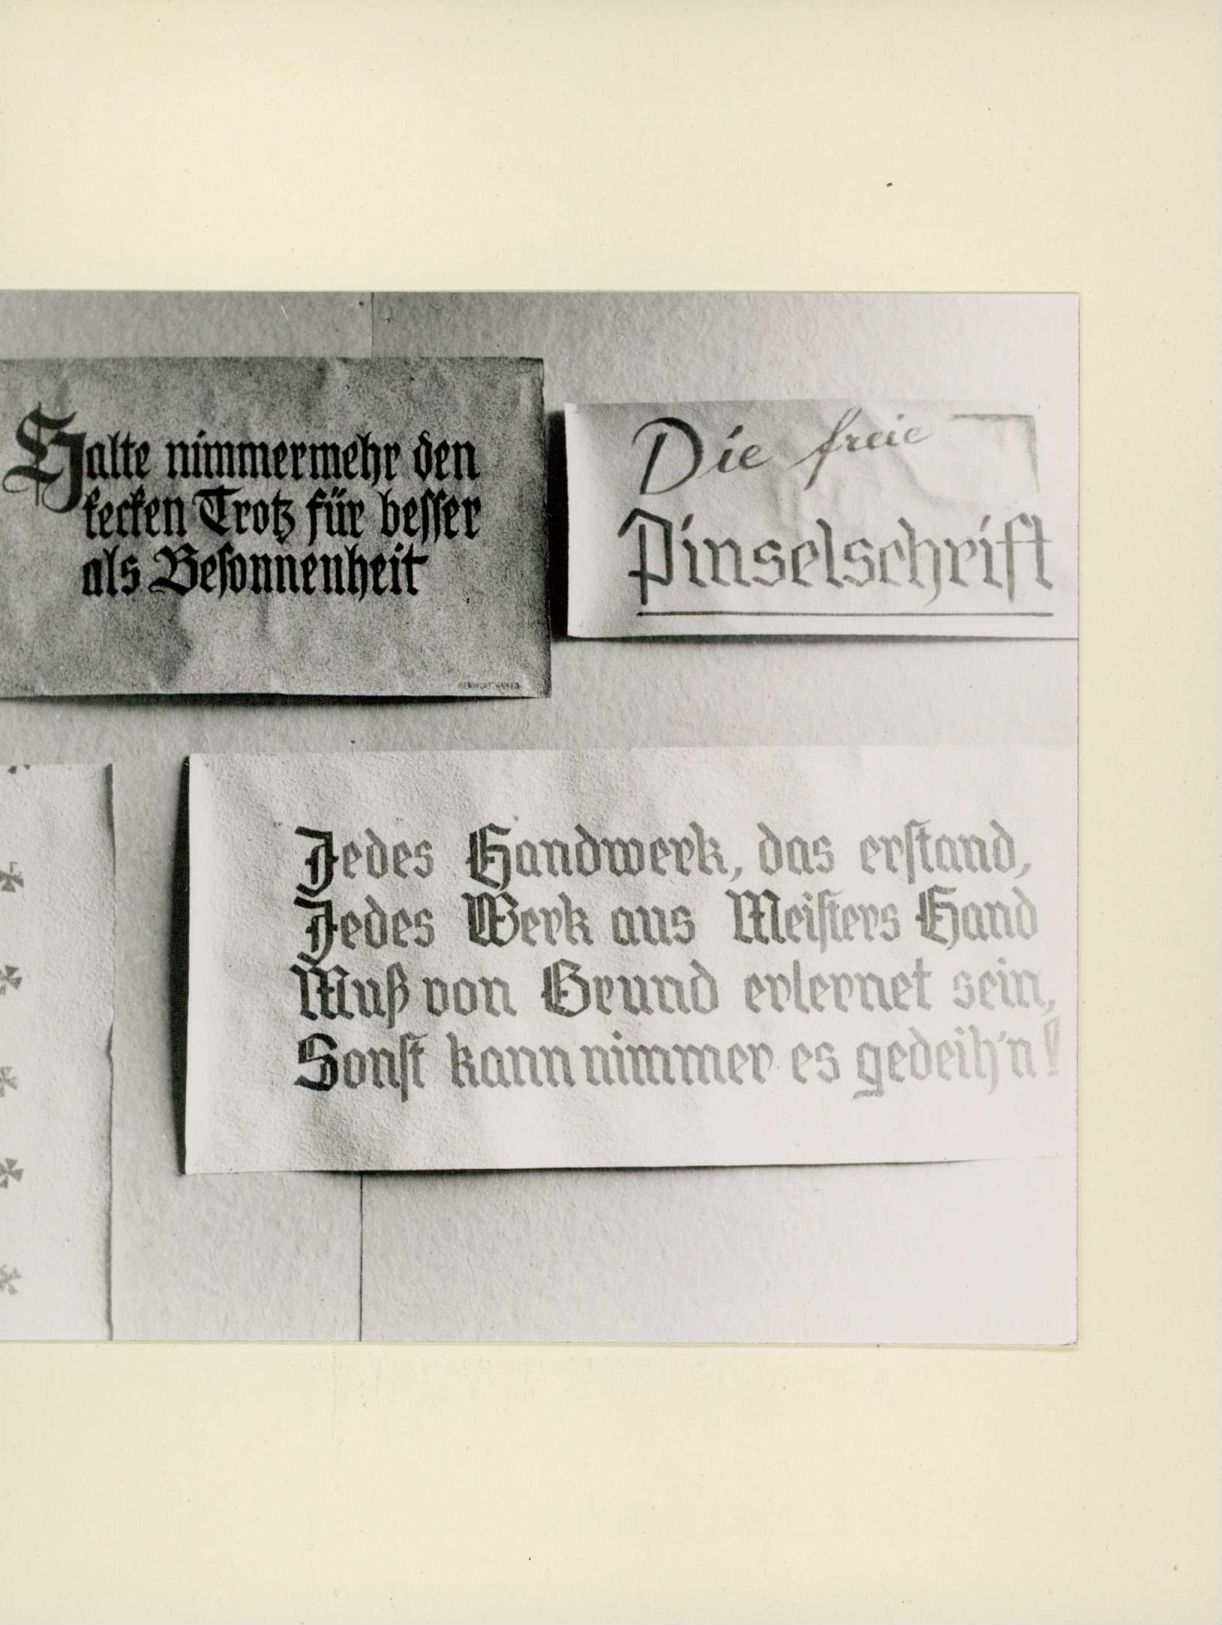 Halte nimmermehr den
kecken Trotz für besser
als Besonnenheit
Die freie
Pinselschrift
Jedes Handwerk, das erstand,
Jedes Werk aus Meisters Hand
Muß von Grund erlernet sein,
Sonst kann nimmer es gedeih'n!